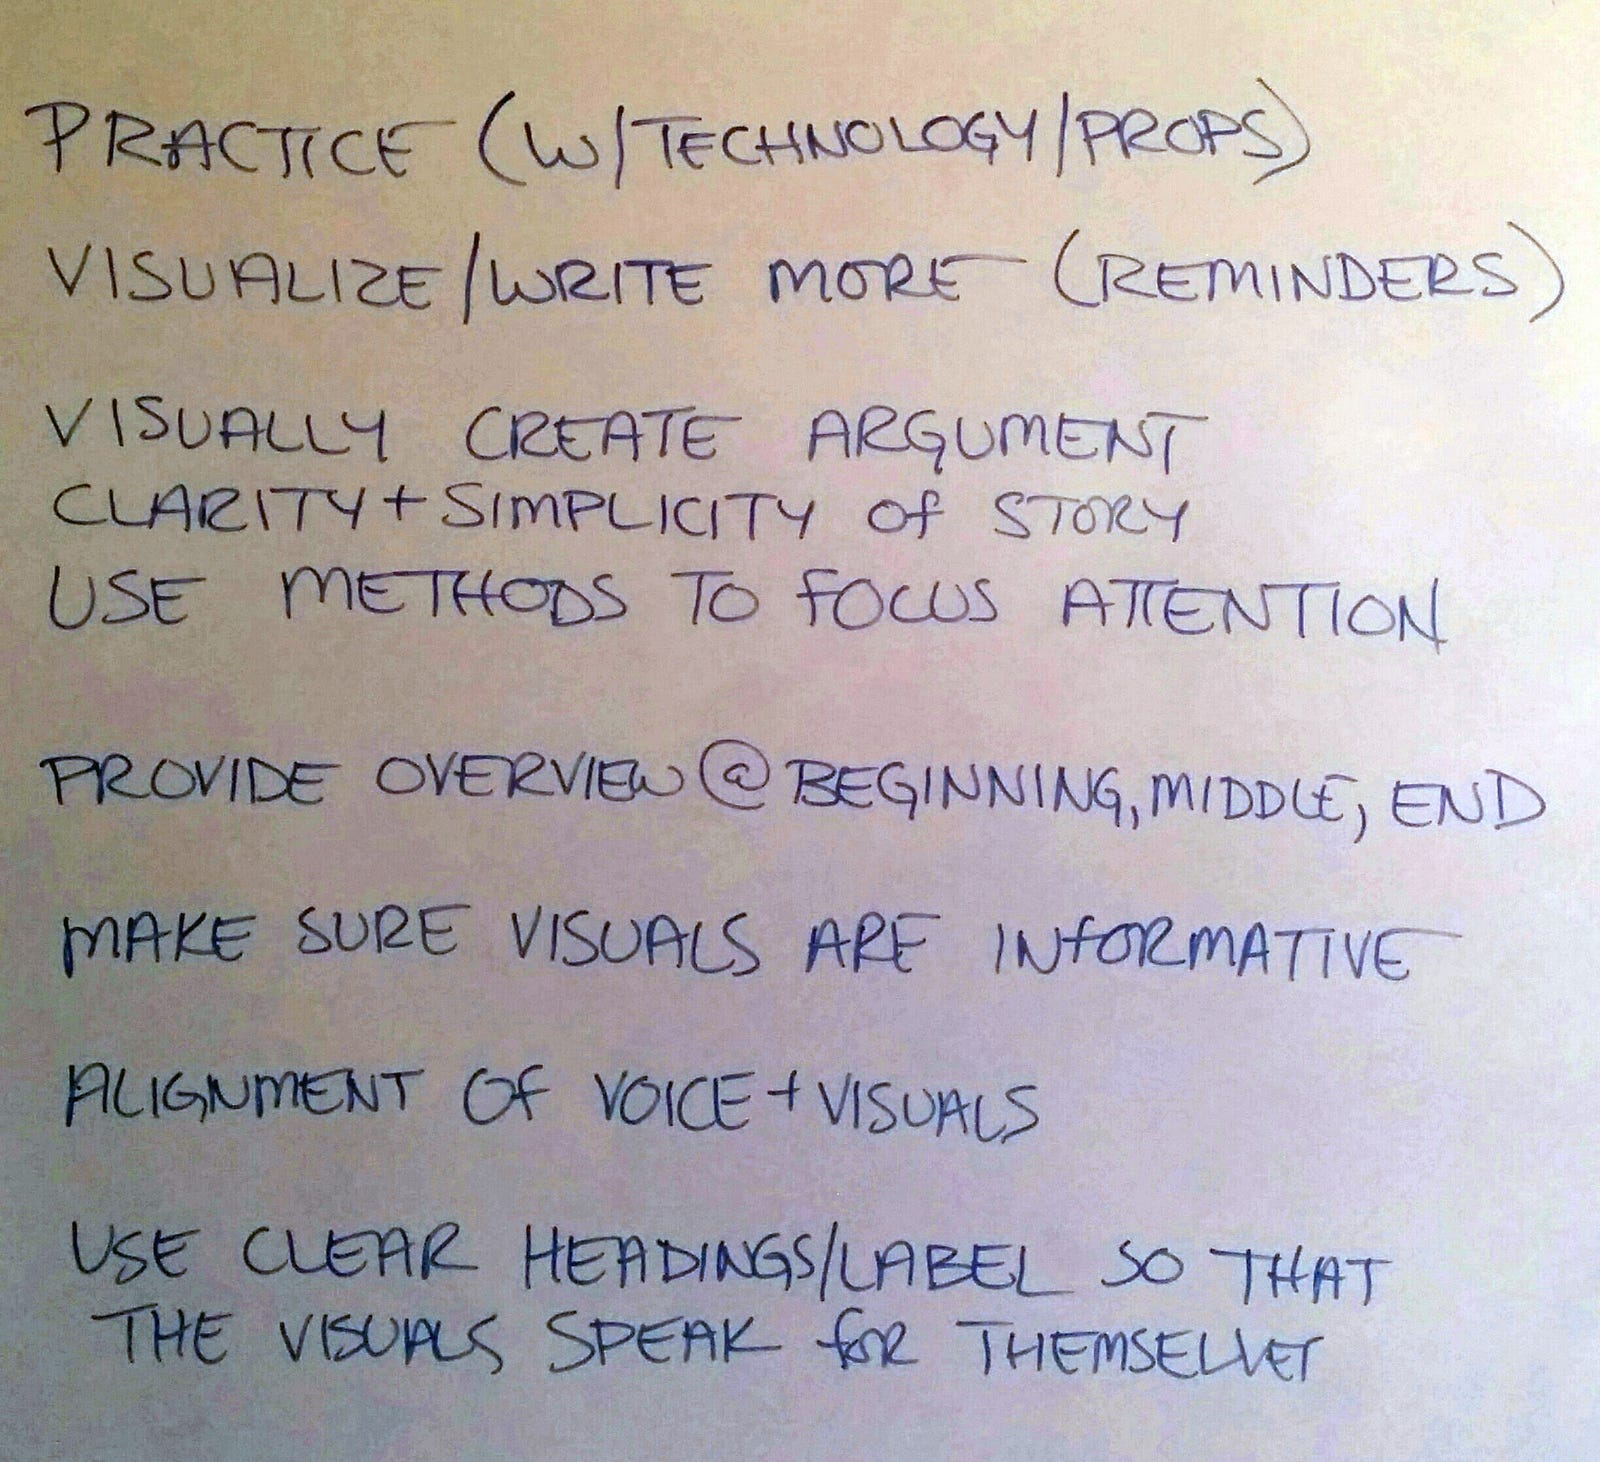 PRACTICE (W/TECHNOLOGY/PROPS)
VISUALIZE/WRITE MORE (REMINDERS)
VISUALLY CREATE ARGUMENT
CLARITY + SIMPLICITY Of STORY
USE METHODS TO fOCUS ATTENTION
PROVIDE OVERVIEW @ BEGINNING, MIDDLE, END
MAKE SURE VISUALS ARE INfORMATIVE
ALIGNMENT Of VOICE + VISUALS
USE CLEAR HEADINGS/LABEL SO THAT
THE VISUALS SPEAK fOR THEMSELVES